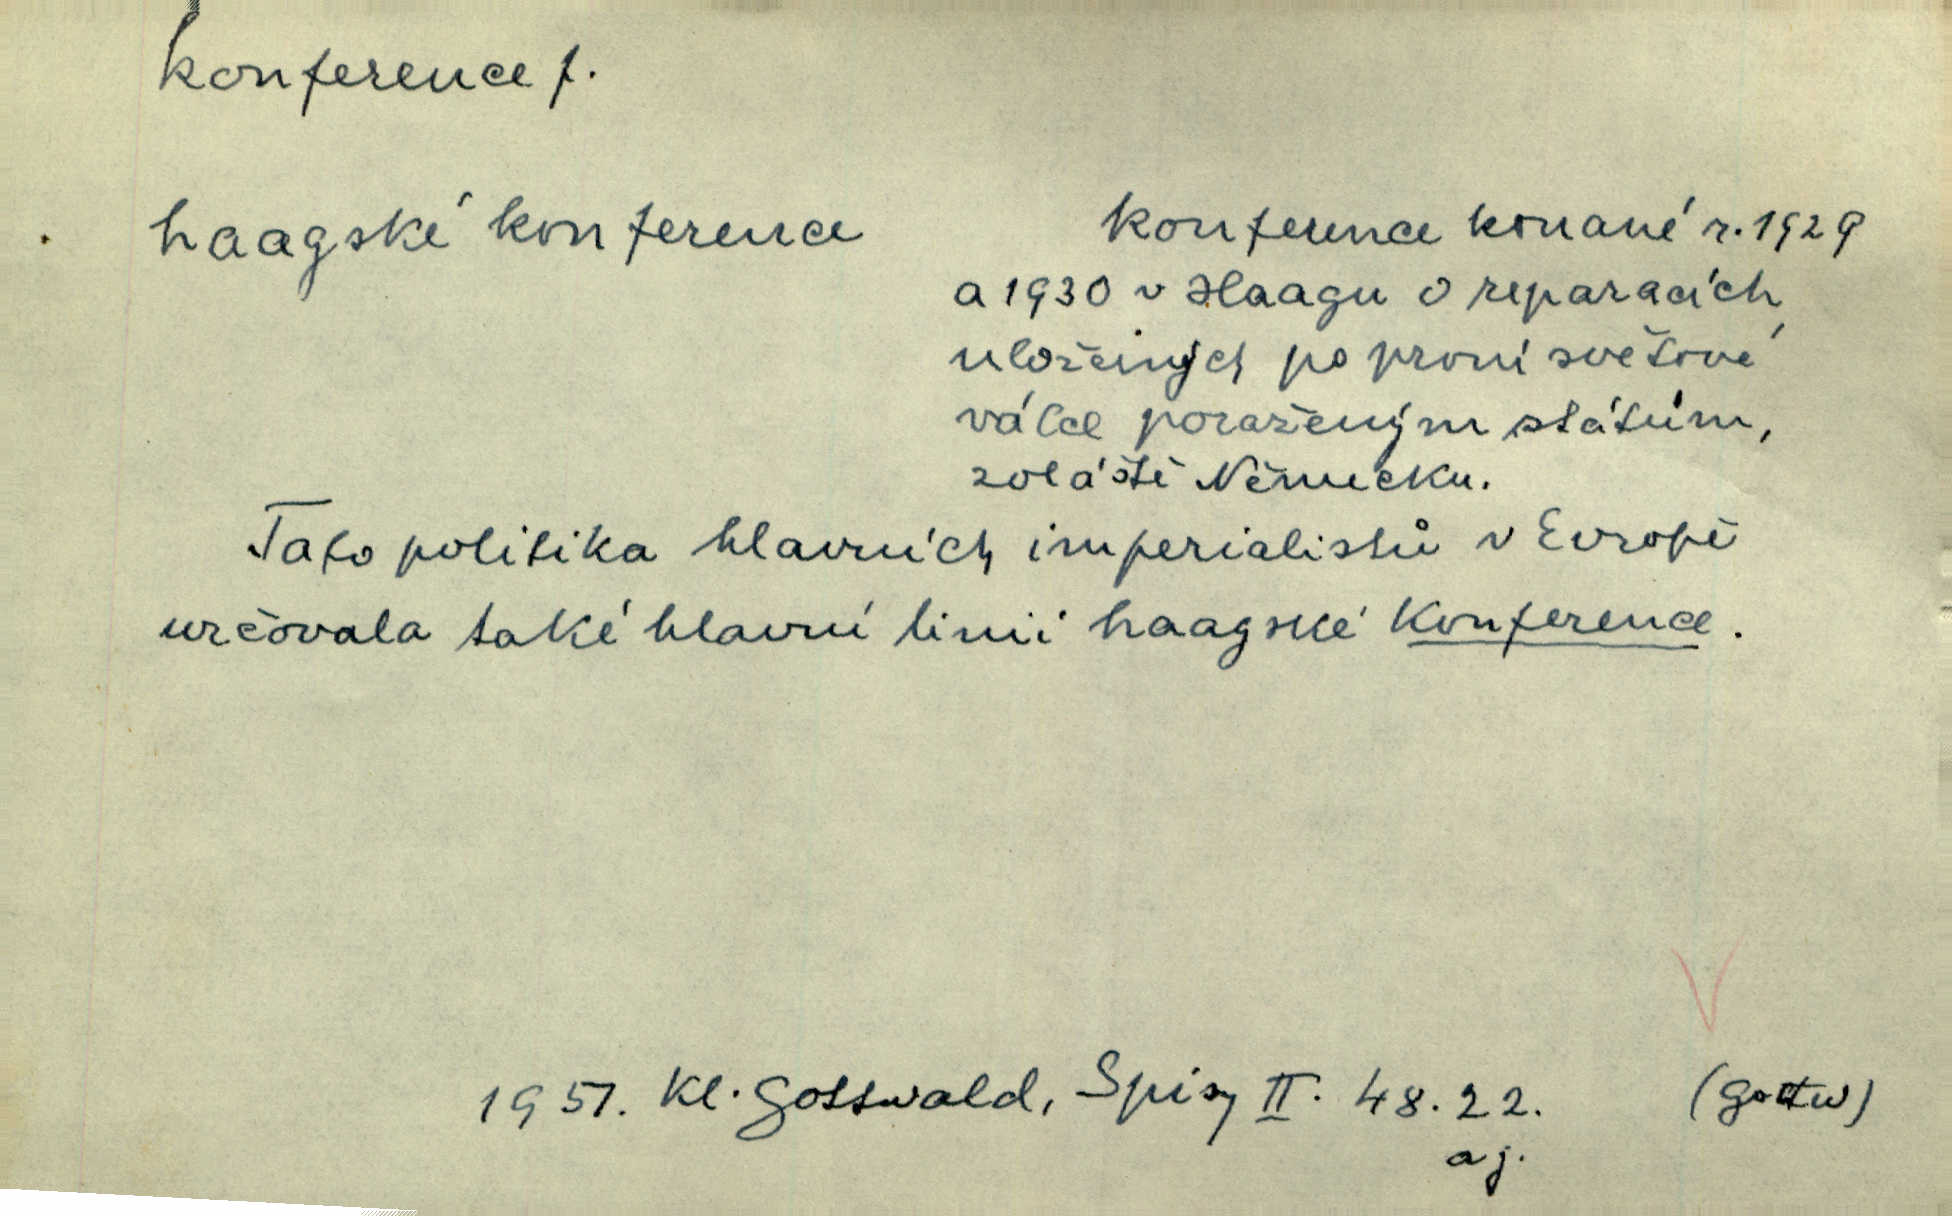 konference f.
haagské konference
konference konané r. 1929
a 1930 v Haagu o reparacích,
uložených po první světové
válce poraženým státům,
zvláště Německu.
Tato politika hlavních imperialistů v Evropě
určovala také hlavní linii haagské konference.
1951. Kl. Gottwald, Spisy II. 48.22.
aj.
(Gottw)